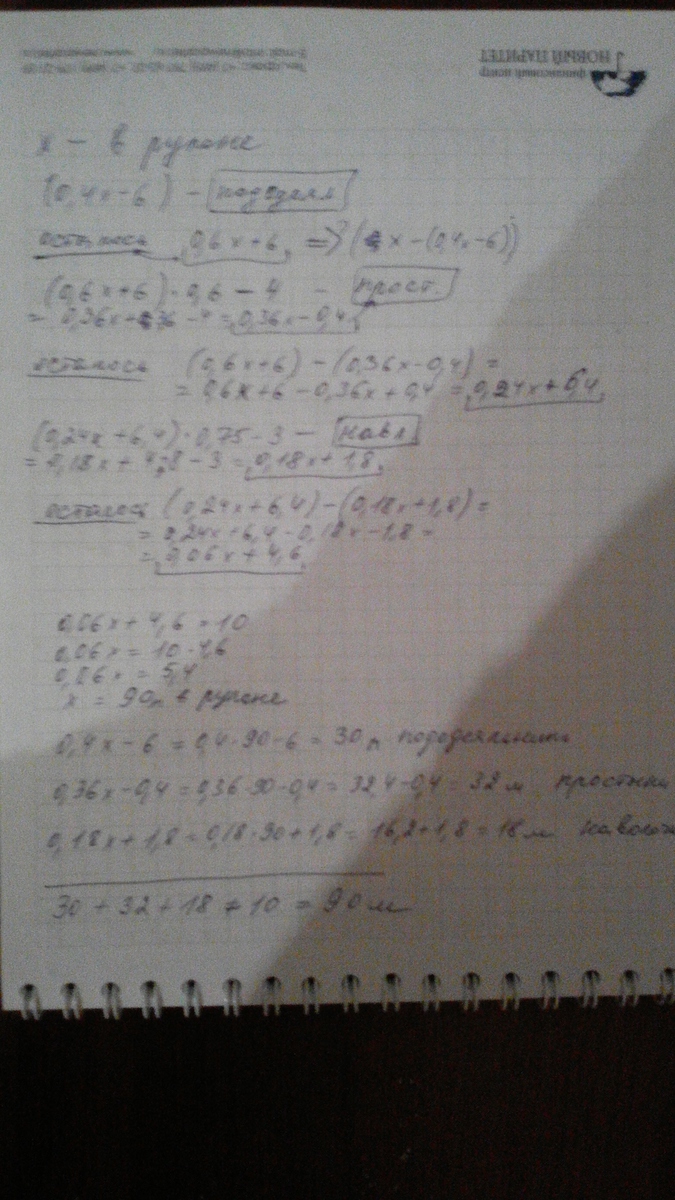 финансовый центр
НОВЫЙ ПАРИТЕТ
x - в рулоне
(0,4x-6) - пододеял
осталось 0,6x+6 => (x-(0,4x-6))
(0,6x+6)·0,6-4 - прост.
= 0,36x+3,6-4 = 0,36x-0,4
осталось (0,6x+6)-(0,36x-0,4) =
= 0,6x+6-0,36x+0,4 = 0,24x+6,4
(0,24x+6,4)·0,75-3 - навл
= 0,18x+4,8-3 = 0,18x+1,8
осталось (0,24x+6,4)-(0,18x+1,8) =
= 0,24x+6,4-0,18x-1,8 =
= 0,06x+4,6
0,06x+4,6=10
0,06x=10-4,6
0,06x=5,4
x = 90м в рулоне
0,4x-6 = 0,4·90-6 = 30м пододеяльники
0,36x-0,4 = 0,36·90-0,4 = 32,4-0,4 = 32м простыни
0,18x+1,8 = 0,18·90+1,8 = 16,2+1,8 = 18м наволоч
30+32+18+10 = 90м